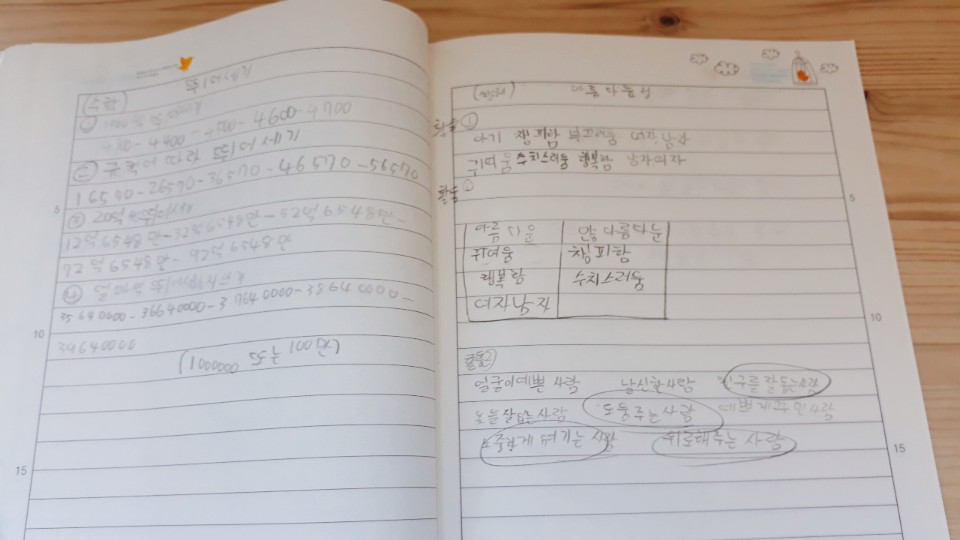 (수학) 뛰어세기
4400 4600-4700
② 규칙에 따라 뛰어 세기
16570-26570-36570-46570-56570
③ 20억
12억6548만-32억6548만-52억6548만-
72억6548만-92억6548만
④
35640000-36640000-37640000-38640000-
39640000
(1000000 또는 100만)
5
10
15
아름다움
활동①
아기 챙피함 부끄러움 여자,남자
귀여움 수치스러움 행복함 남자여자
활동
아름다운 안 아름다운
귀여움 챙피함
행복함 수치스러움
여자남자
활동2)
얼굴이예쁜 사람 날신한사람 친구를잘돕는사람
옷을잘입는사람 도움주는사람
소중하게 여기는 사람 위로해주는 사람
5
10
15